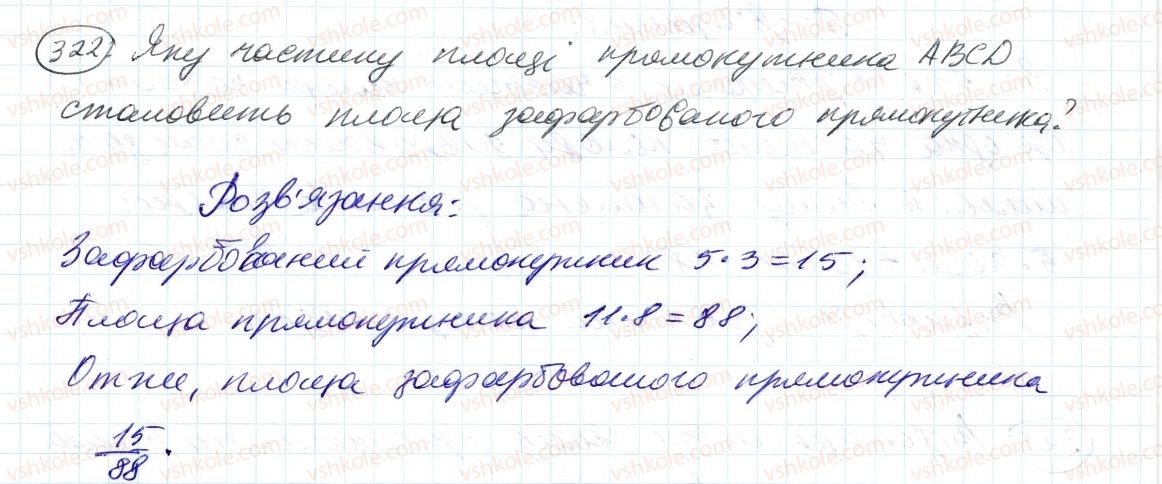 322) Яку частину площі прямокутника ABCD
становить площа зафарбованого прямокутника?
Розв'язання:
Зафарбований прямокутник 5·3=15;
Площа прямокутника 11·8=88;
Отже, площа зафарбованого прямокутника
15/88.